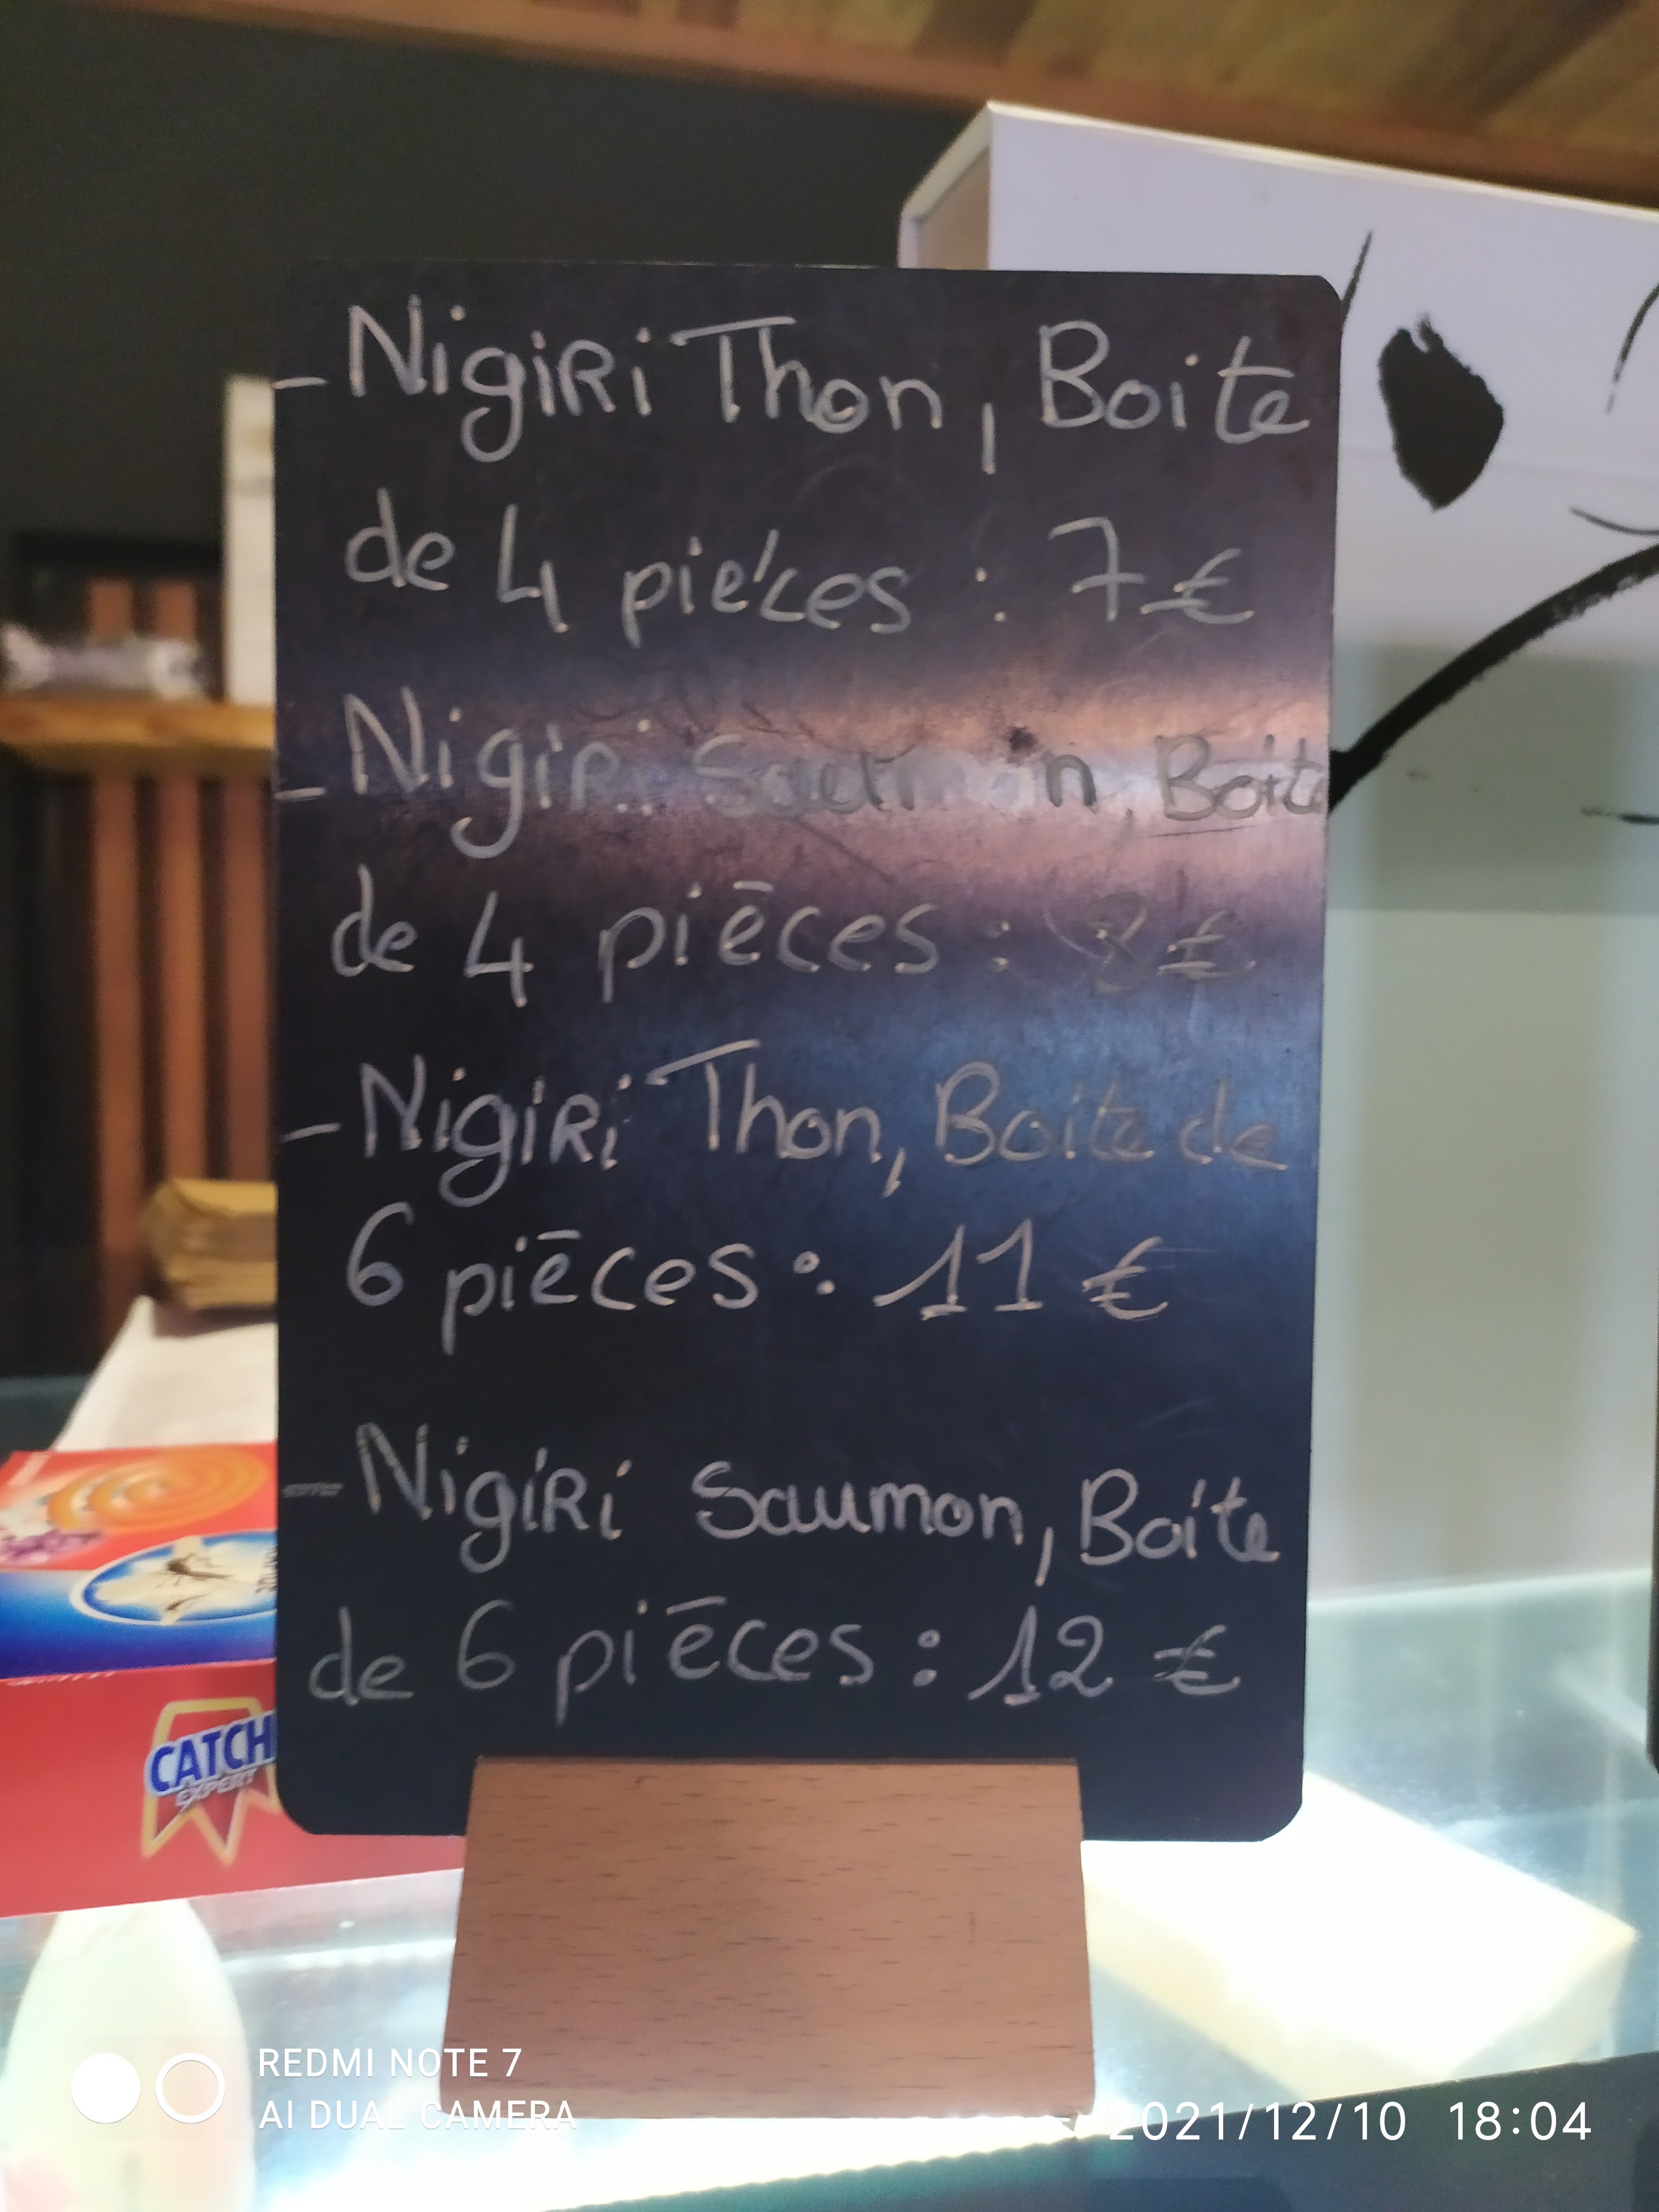 - Nigiri Thon, Boite
de 4 piéces : 7€
- Nigiri Saumon, Boite
de 4 piēces : 8€
- Nigiri Thon, Boite de
6 piēces : 11 €
- Nigiri Saumon, Boite
de 6 piēces : 12 €
CATCH
EXPERT
REDMI NOTE 7
AI DUAL CAMERA
2021/12/10 18:04